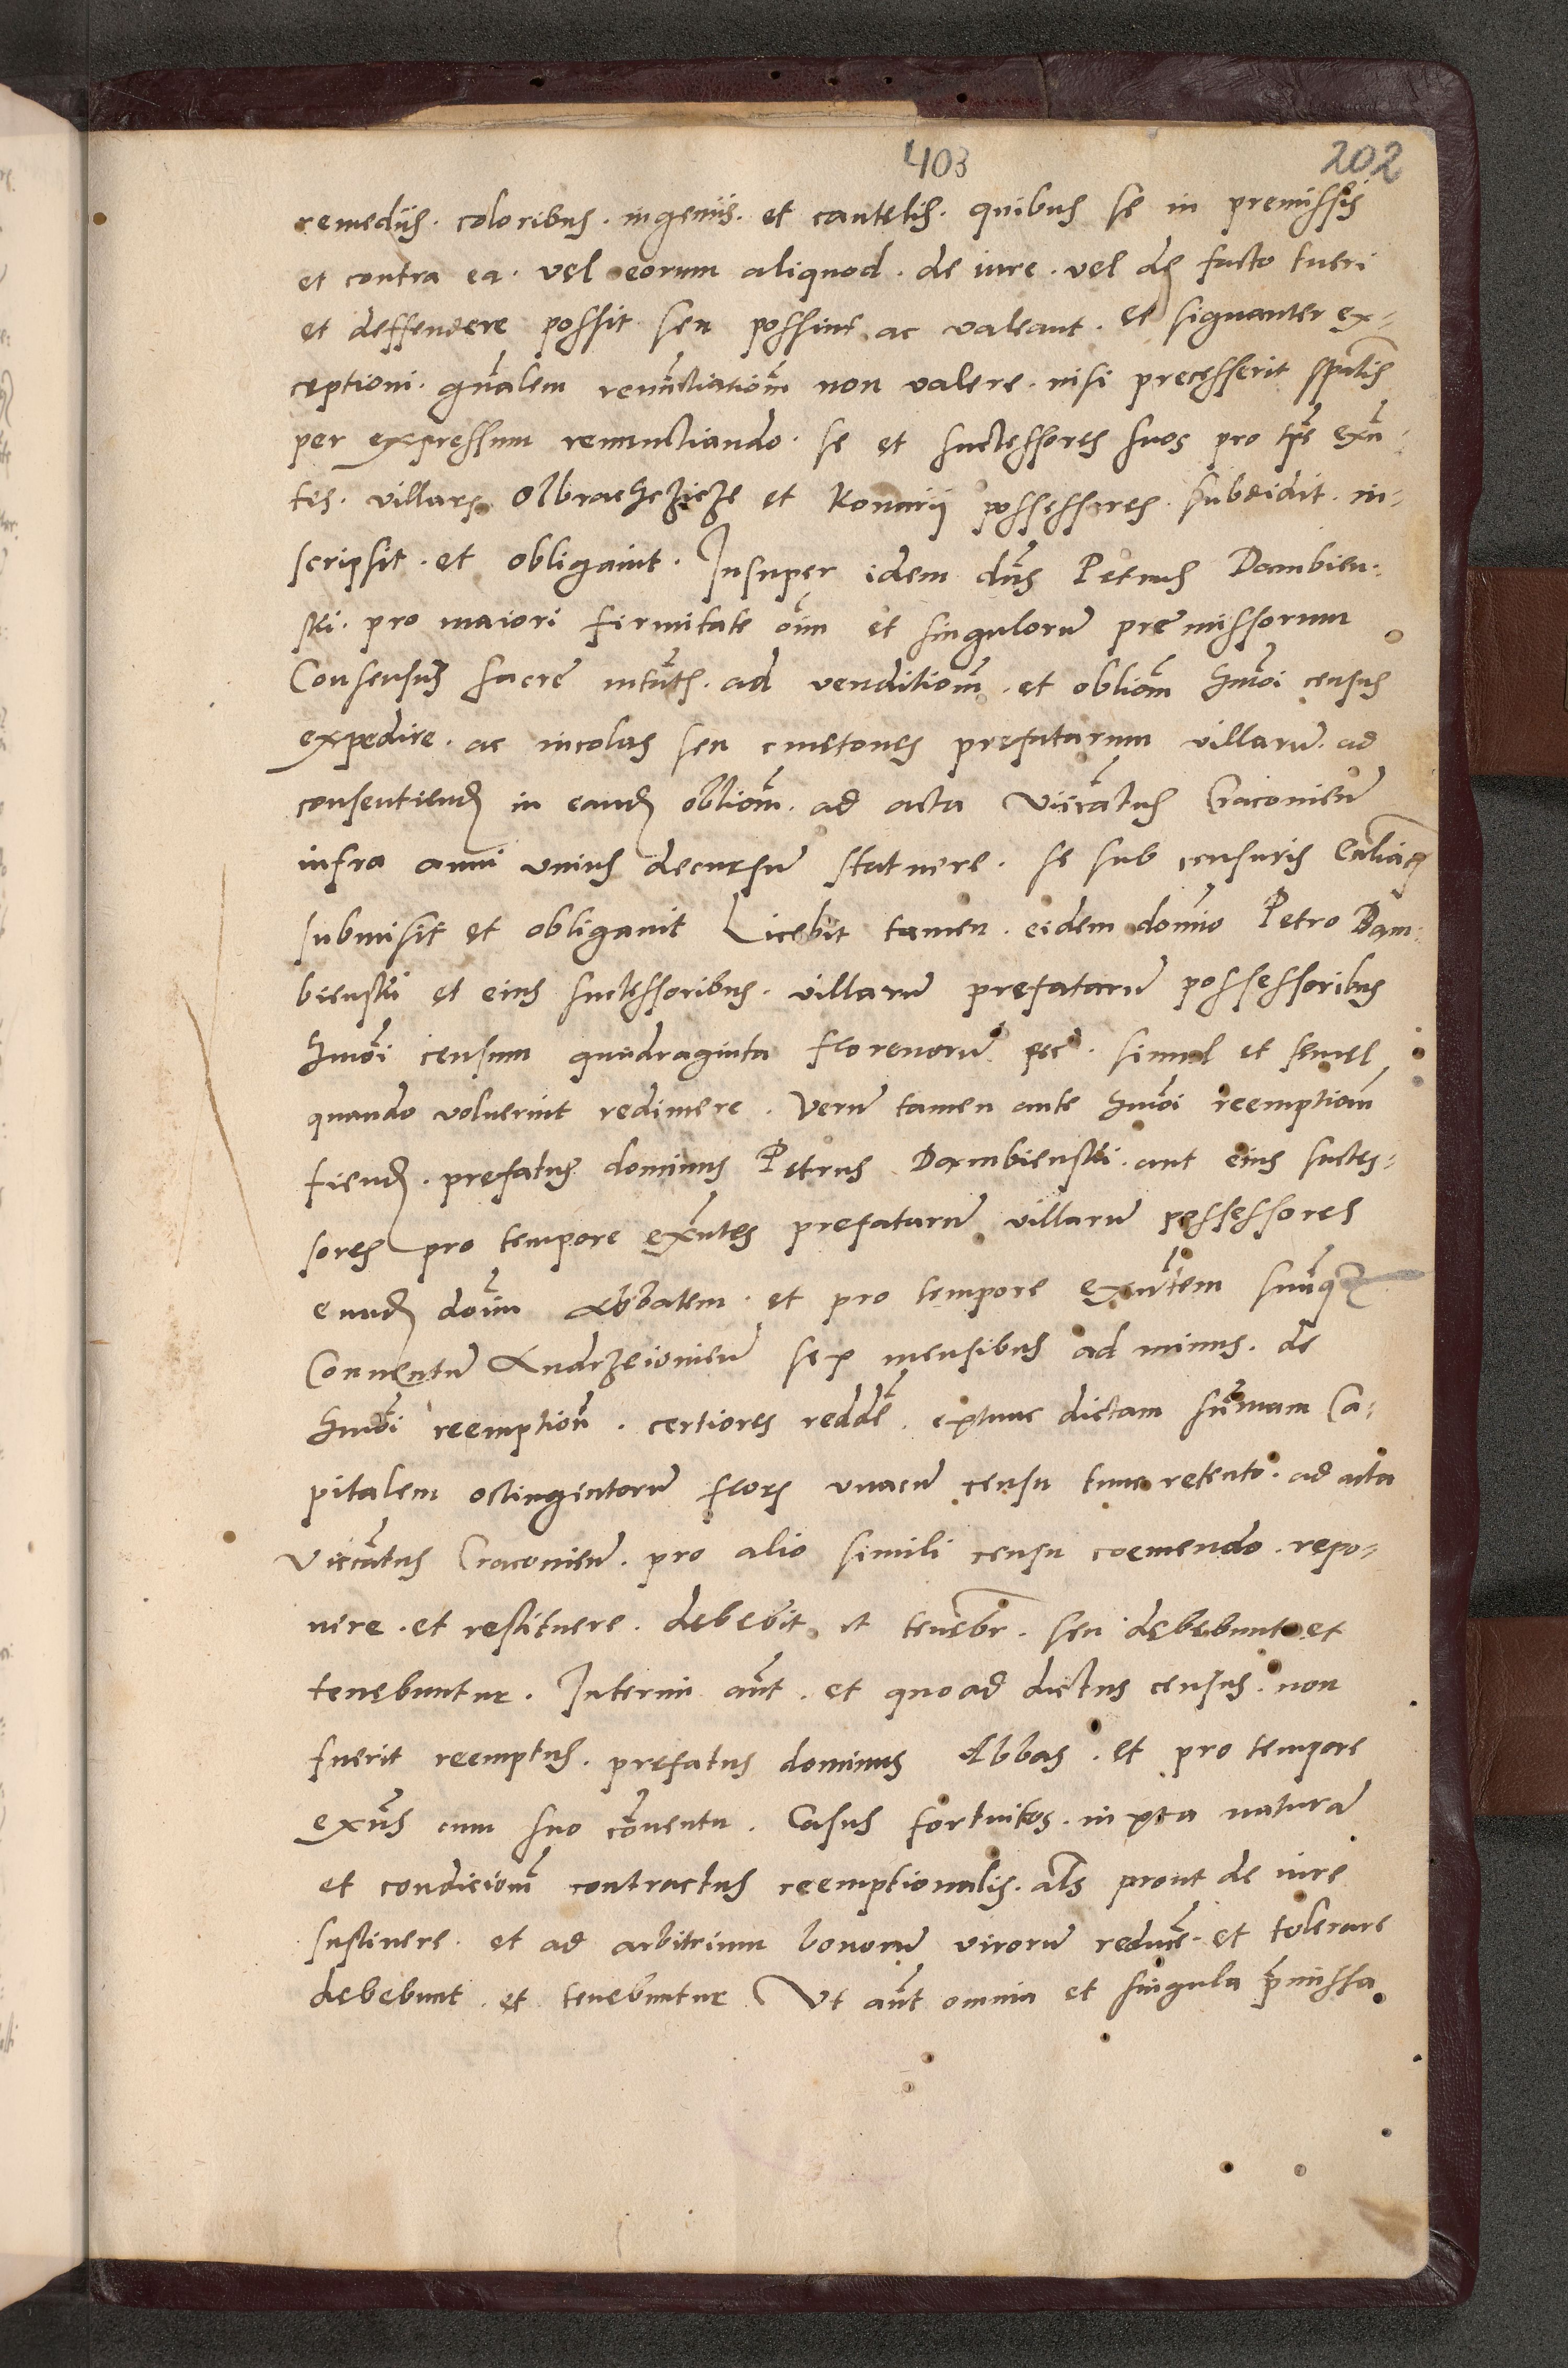 403 202
remediis. coloribus. ingeniis. et cautelis. quibus se in premissis
et contra ea. vel eorum aliquod. de iure. vel de facto tueri
et deffendere possit seu possint ac valeant. et signanter ex-
ceptioni. gnalem renuncciationem non valere. nisi precesserit spalis
per expressum renunctiando. se et successores suos pro tpe exn-
tes. villarum Olbrachczicze et Konarij possessores. subdidit. in-
scripsit. et obligauit. Insuper idem dns Petrus Dambien-
ski. pro maiori firmitate oim et singulorum premissorum
Consensus sacre mtatis. ad venditionem. et obliom hmoi census
expedire. ac incolas seu cmetones prefatarum villarum. ad
consentiendum in eandem obliom. ad acta Viiratus Cracouien
infra anni vnius decursum statuere. se sub censuris Ecclia
submisit et obligauit Licebit tamen. eidem domino Petro Dam-
bienski et eius successoribus. villarum prefatarum possessoribus
hmoi censum quadraginta florenorum pec. simul et semel
quando voluerint redimere. Verum tamen ante hmoi reemptionem
fiendam. prefatus dominus Petrus Dambienski. aut eius succes-
sores pro tempore exntes prefatarum villarum possessores
eundem doim Abbatem. et pro tempore exntem suumq
Conuentum Andrzeiouien sex mensibus ad minus. de
hmoi reemption. certiores redde. extunc dictam summam Ca-
pitalem octingentorum flor vnacum censu tunc retento. ad acta
Vicratus Cracouien. pro alio simili censu coemendo. repo-
nere. et restituere. debebit et tenebr. seu debebunt et
tenebuntur. Interim aut. et quoad dictus census. non
fuerit reemptus. prefatus dominus Abbas. et pro tempore
exns cum suo conuentu. Casus fortuitos. iuxta naturam
et condicionem contractus reemptionalis. als prout de iure
sustinere. et ad arbitrium bonorum virorum reduce. et tolerare
debebunt. et tenebuntur Vt aut omnia et singula pmissa